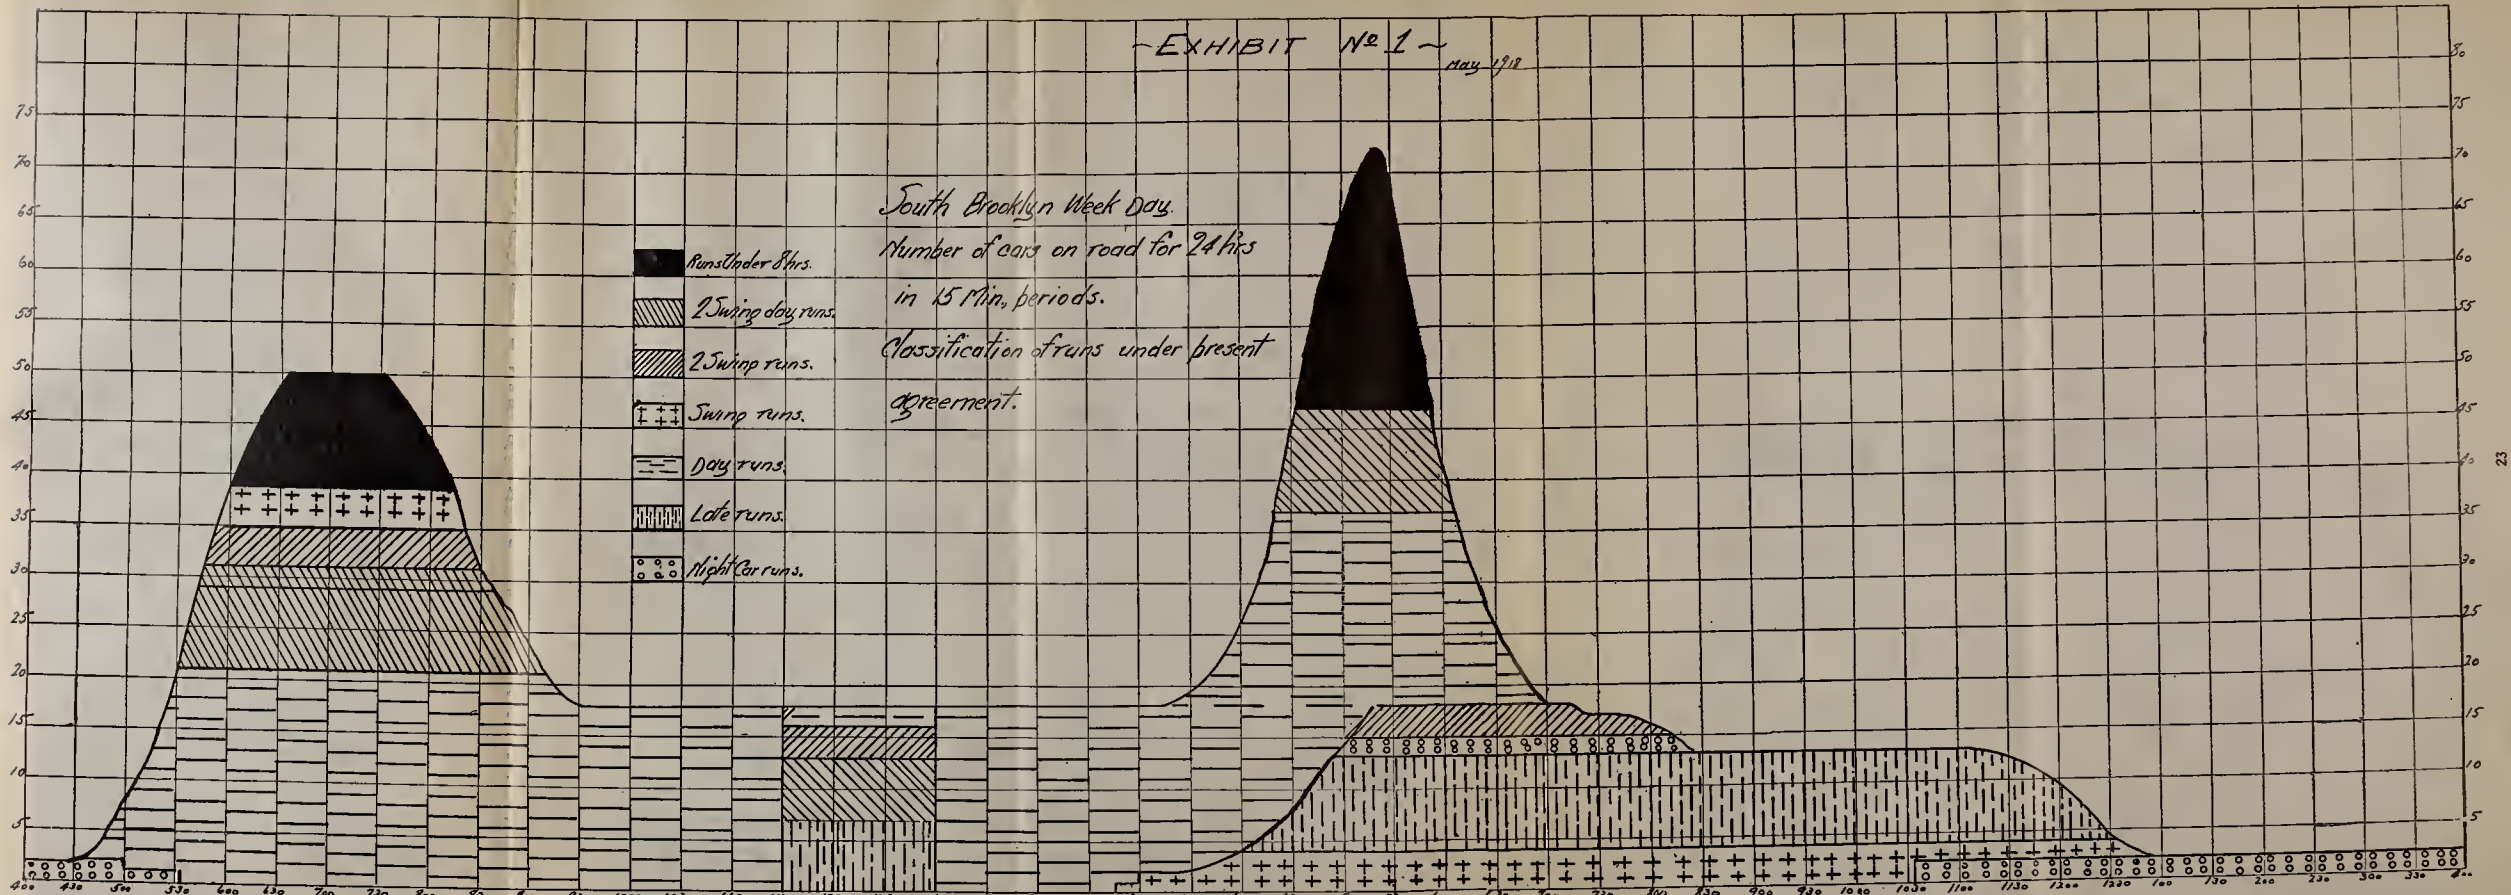 ~EXHIBIT Nº 1~
May 1918
South Brooklyn Week Day.
Number of cars on road for 24 hrs
in 15 Min., periods.
Classification of runs under present
agreement.
Runs Under 8 hrs.
2 Swing day runs.
2 Swing runs.
Swing runs.
Day runs.
Late runs.
Night Car runs.
75
70
65
60
55
50
45
40
35
30
25
20
15
10
5
80
75
70
65
60
55
50
45
40
35
30
25
20
15
10
5
23
400 430 500 530 600 630 700 730 800
730 800 830 900 930 1000 1030 1100 1130 1200 1230 100 130 200 230 300 330 400